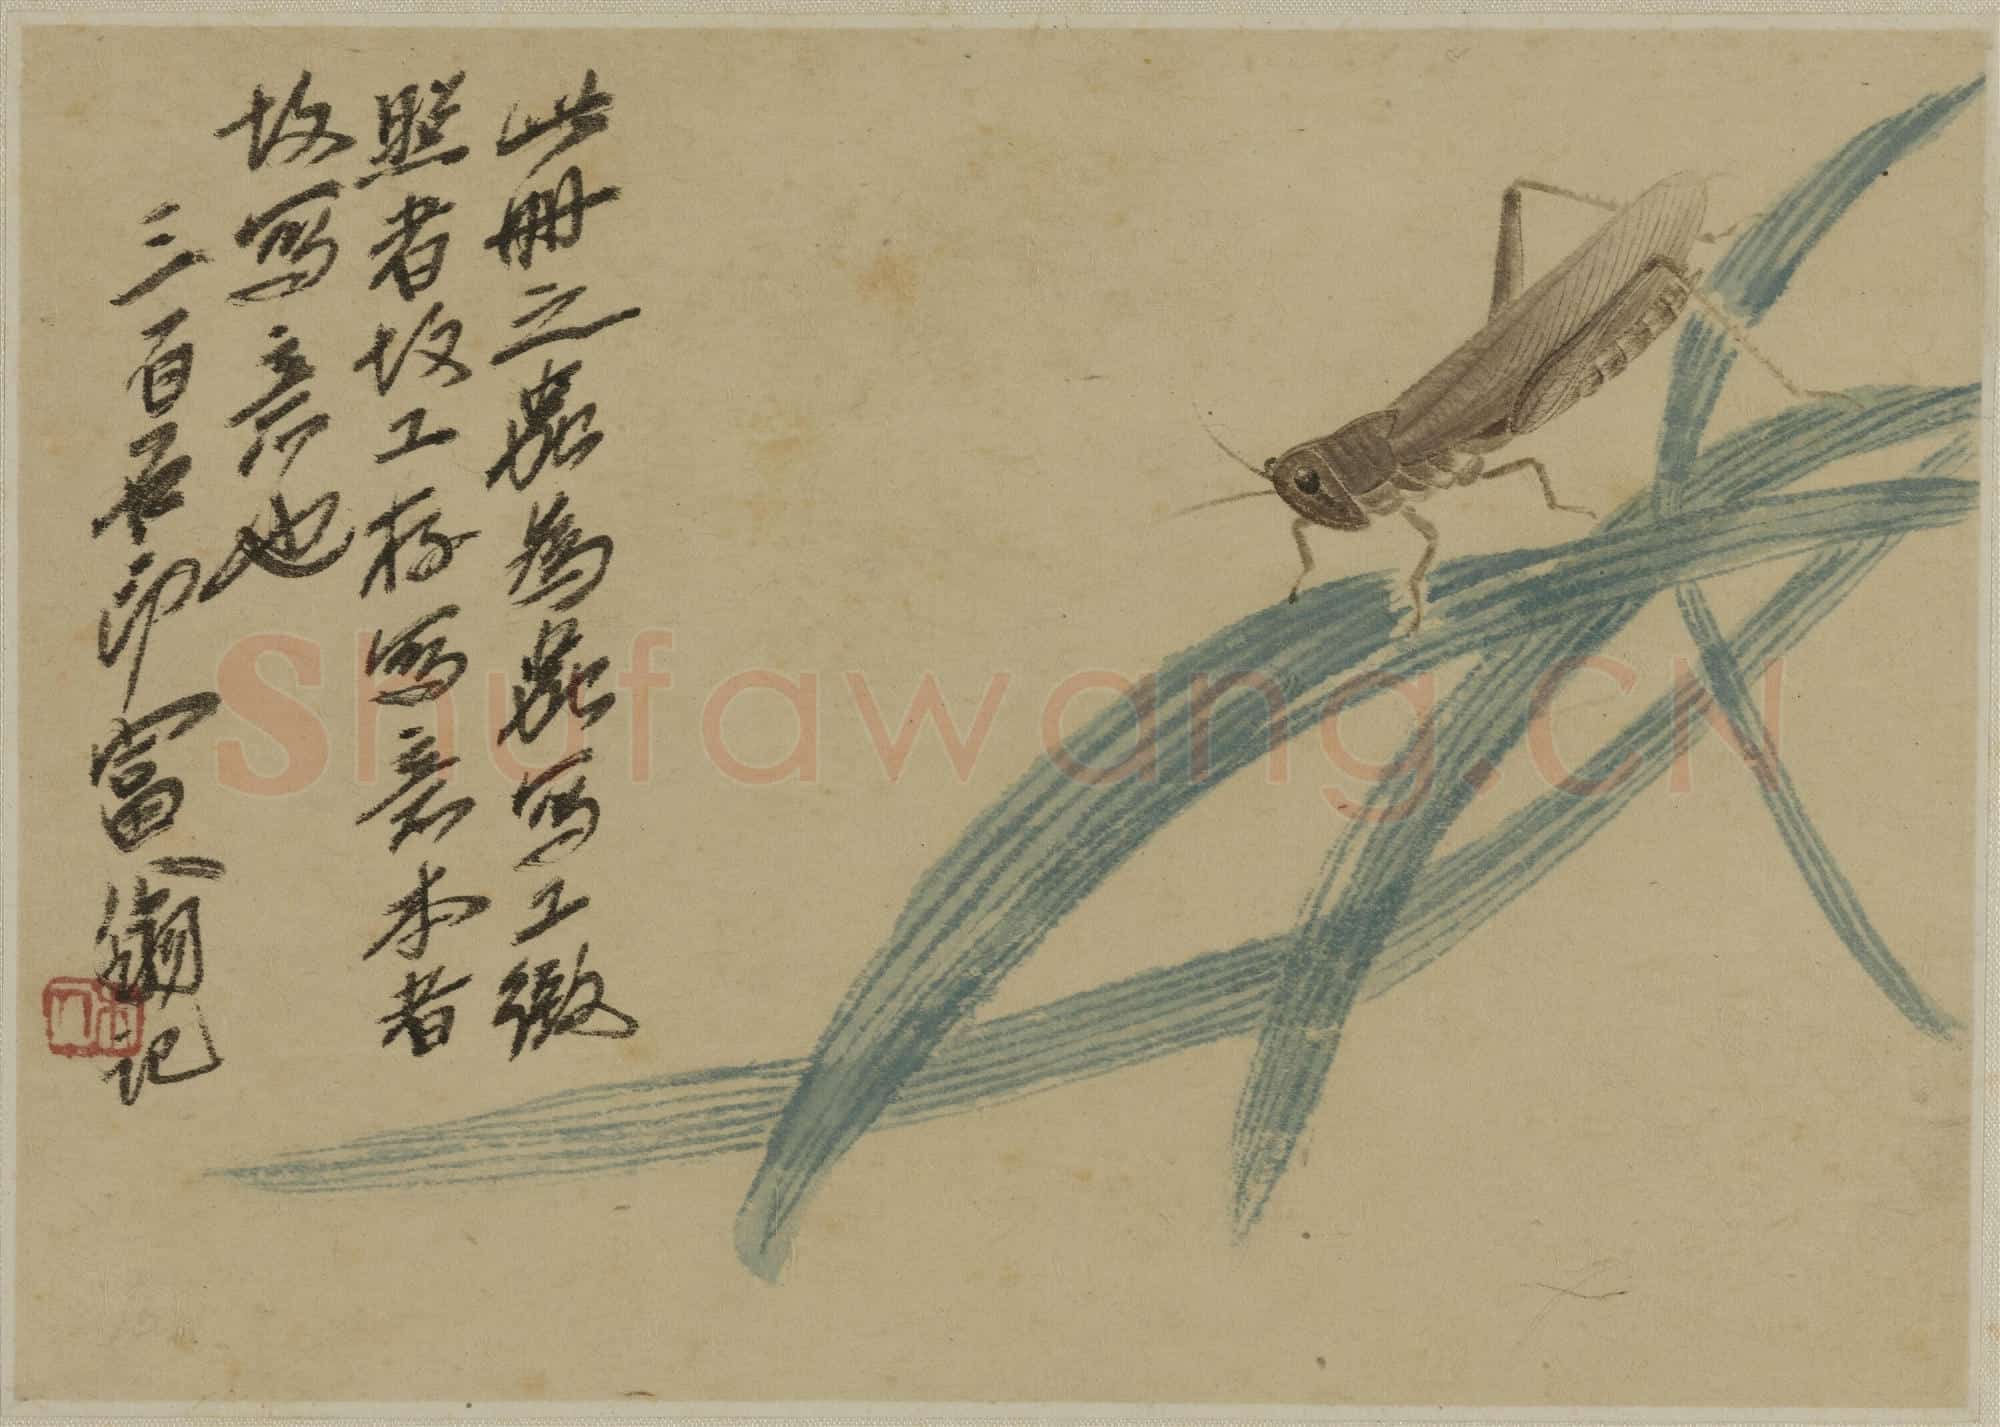 此冊之蟲為蟲寫工緻
照者故工存寫意本者
故寫意也
三百石印富翁記
木人
Shufawang.CN